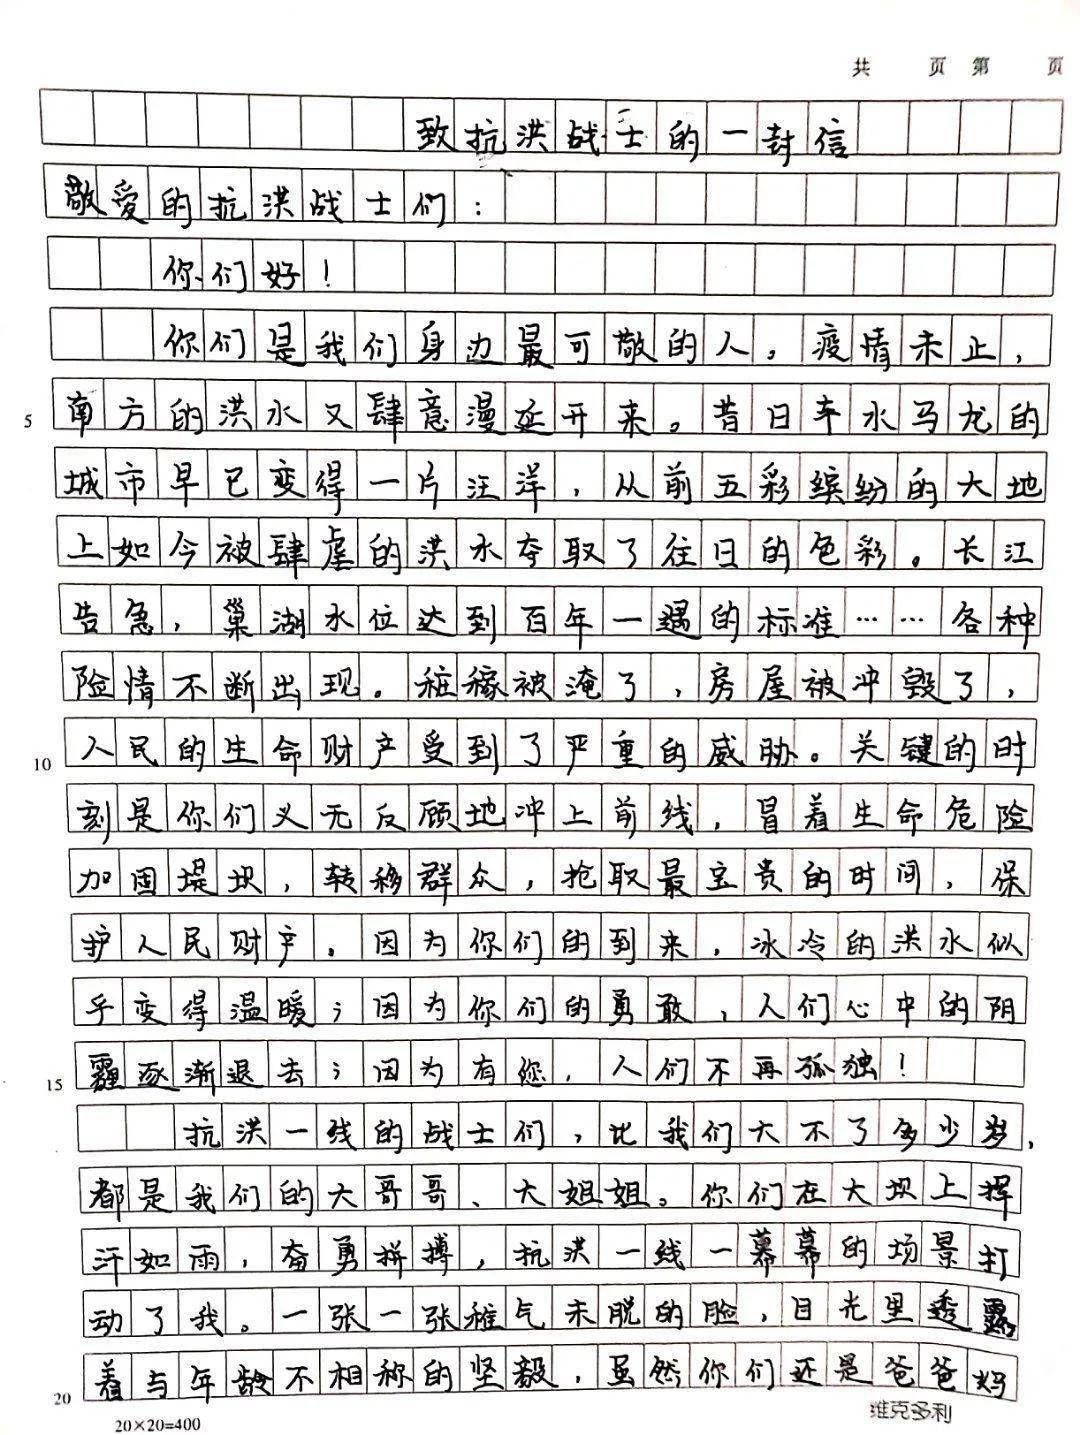 共 页 第 页
致抗洪战士的一封信
敬爱的抗洪战士们：
你们好！
你们是我们身边最可敬的人。疫情未止，
5 南方的洪水又肆意漫延开来。昔日车水马龙的
城市早已变得一片汪洋，从前五彩缤纷的大地
上如今被肆虐的洪水夺取了往日的色彩。长江
告急，巢湖水位达到百年一遇的标准……各种
险情不断出现。秧稼被淹了，房屋被冲毁了，
10 人民的生命财产受到了严重的威胁。关键的时
刻是你们义无反顾地冲上前线，冒着生命危险
加固堤坝，转移群众，抢取最宝贵的时间，保
护人民财产。因为你们的到来，冰冷的洪水似
乎变得温暖；因为你们的勇敢，人们心中的阴
15 霾逐渐退去；因为有您，人们不再孤独！
抗洪一线的战士们，比我们大不了多少岁，
都是我们的大哥哥、大姐姐。你们在大坝上挥
汗如雨，奋勇拼搏，抗洪一线一幕幕的场景打
动了我。一张一张稚气未脱的脸，目光里透露
20 着与年龄不相称的坚毅，虽然你们还是爸爸妈
20×20=400
维克多利